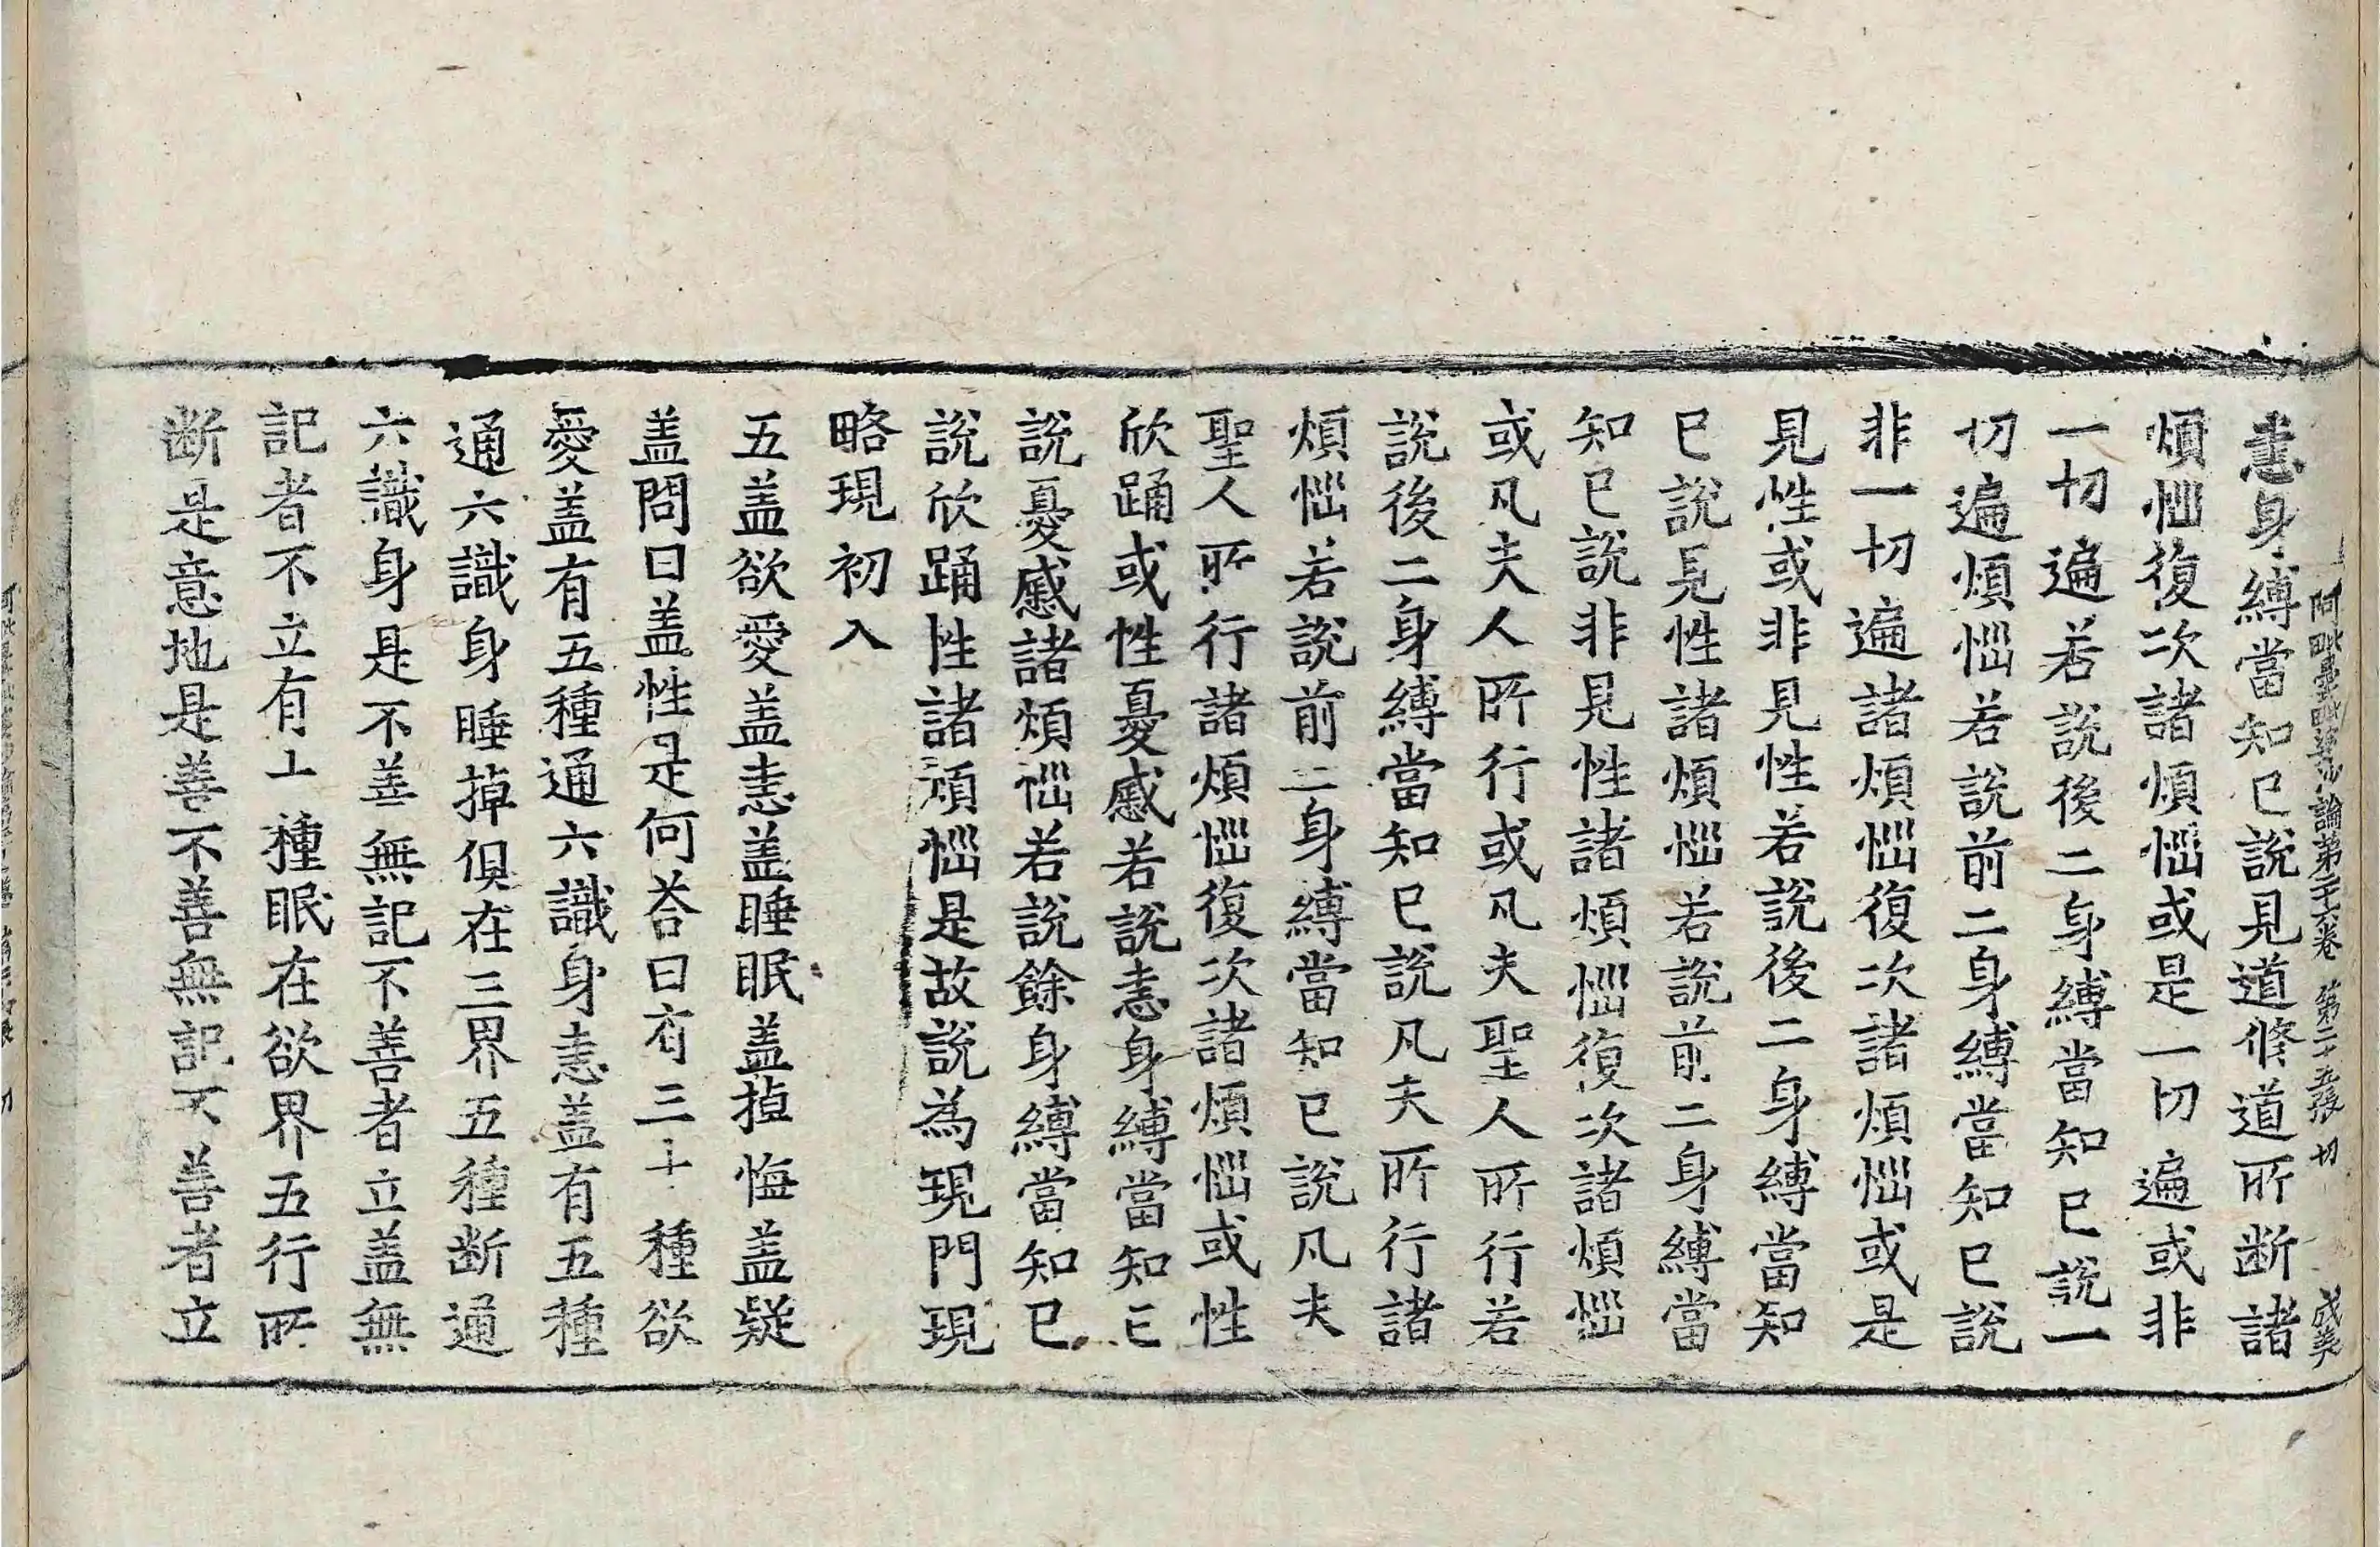 阿毗曇毗婆沙論第二十六卷 第二十五張 切
恚身縛當知已說見道修道所斷諸
煩惱復次諸煩惱或是一切遍或非
一切遍若說後二身縛當知已說一
切遍煩惱若說前二身縛當知已說
非一切遍諸煩惱復次諸煩惱或是
見性或非見性若說後二身縛當知
已說見性諸煩惱若說前二身縛當
知已說非見性諸煩惱復次諸煩惱
或凡夫人所行或凡夫聖人所行若
說後二身縛當知已說凡夫所行諸
煩惱若說前二身縛當知已說凡夫
聖人所行諸煩惱復次諸煩惱或性
欣踊或性憂慼若說恚身縛當知已
說憂慼諸煩惱若說餘身縛當知已
說欣踊性諸煩惱是故說為現門現
略現初入
五盖欲愛盖恚盖睡眠盖掉悔盖疑
盖問曰盖性是何荅曰有三十種欲
愛盖有五種通六識身恚盖有五種
通六識身睡掉俱在三界五種斷通
六識身是不善無記不善者立盖無
記者不立有十種眠在欲界五行所
斷是意地是善不善無記不善者立